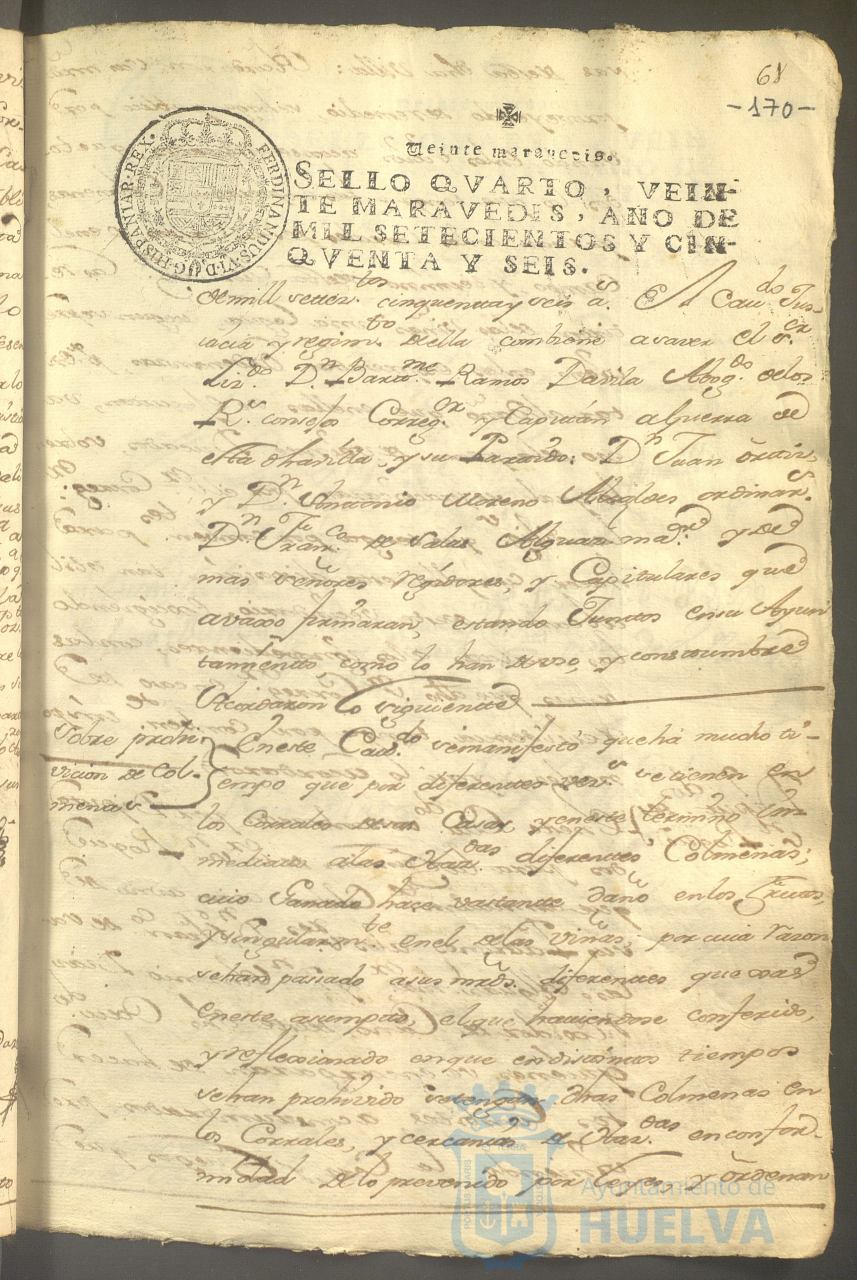 68
-170-
Veinte maravedis.
SELLO QVARTO, VEIN-
TE MARAVEDIS, AÑO DE
MIL SETECIENTOS Y CIN-
QVENTA Y SEIS.
FERDINANDUS·VI·D·G·HISPANIAR·REX·
demill settez.tos cinquentay seis a.s El Cav.do Jus-
ticia y regim.to de ella combiene asaver el s.or
Liz.do D.n Barm.me Ramos Davila Abog.do delos
R.s consejos Correg.or y Capitan aGuerra de
esta dha villa, y su D.n Juan
y D.n Antonio Moreno Alcaldes ordinar.s
D.n Fran.co de Salas Alguacil ma.or y de
mas señores regidores, y Capitulares que
avaxo firmaran, estando Juntos ensu Ayun
tamiento como lo han de uso, y constumbre
Acordaron lo siguiente
Sobre prohi-
vicion de Col-
menas
Eneste Cav.do semanifestó queha mucho ti-
empo que por diferentes vez.s setienen en
los Corrales desus Casas y eneste termino im-
mediato alas diferentes Colmenas;
cuio Ganado haze vastante daño enlos Frutos,
y singularm.te enel delas viñas, por cuia razon
sehan pasado asus mrds. diferentes quexas
Eneste asumpto, elque haviendose conferido,
y reflexionado enque endistintos tiempos
sehan prohivido setengan dhas Colmenas en
los Corrales, y cercanias de enconfor-
midad delo prevenido por Leyes, y ordenan
Ayuntamiento de
HUELVA